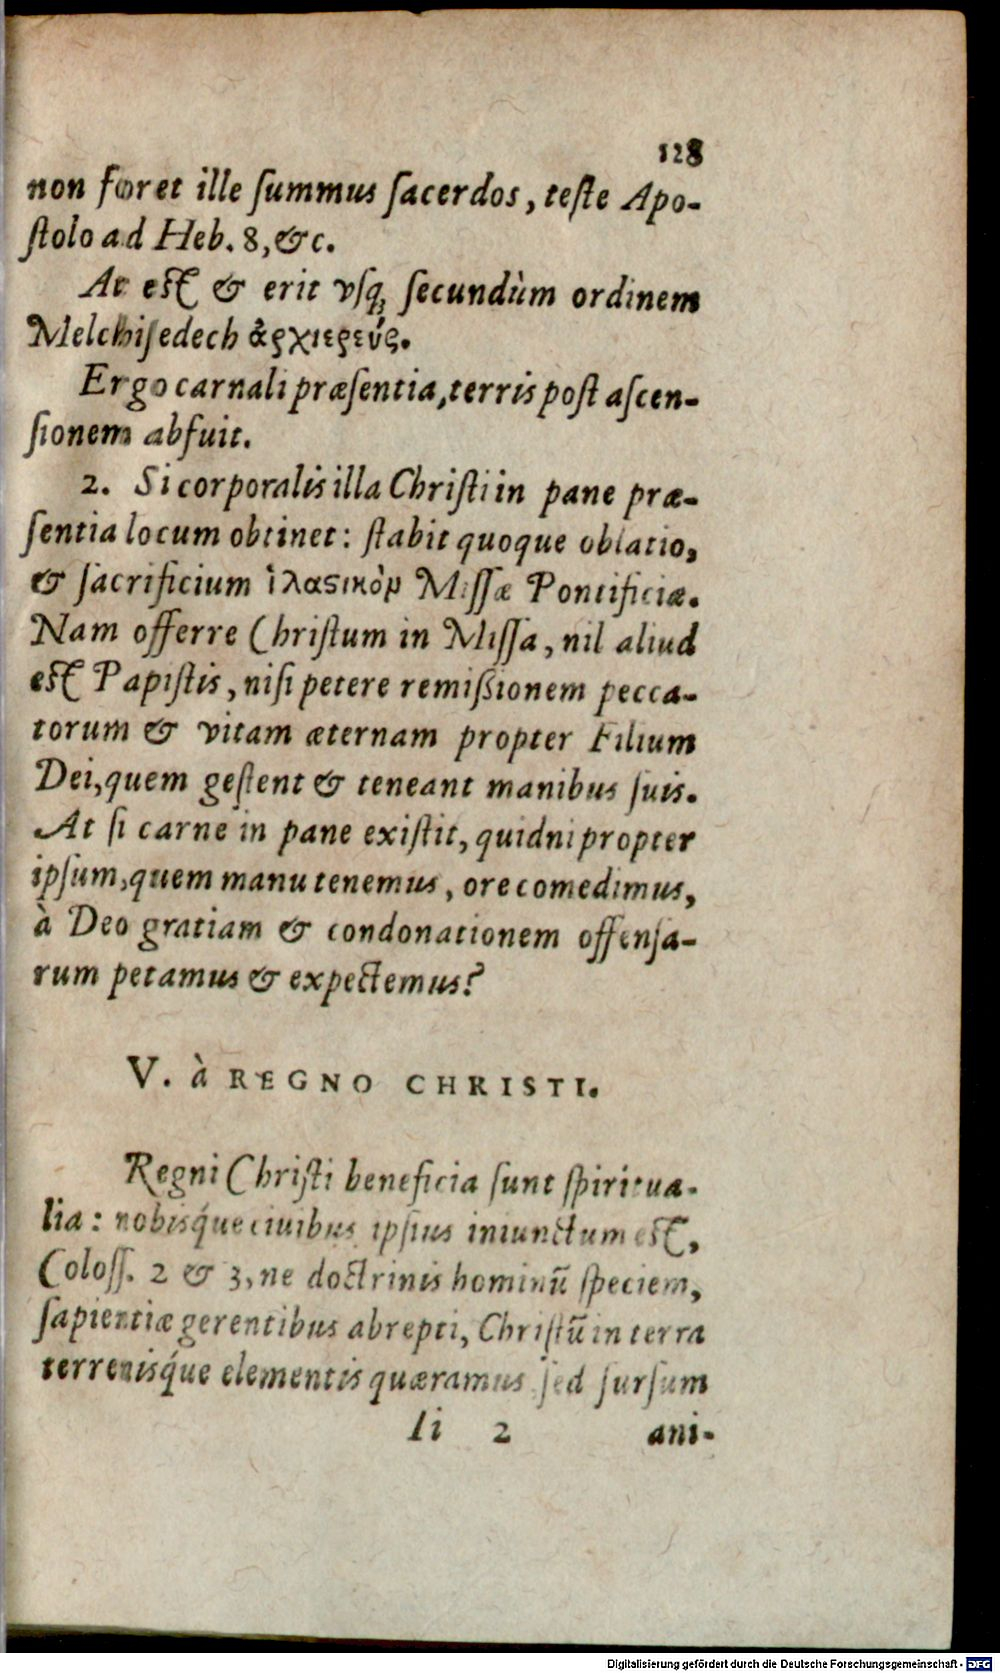 128
non foret ille ſummus ſacerdos, teſte Apo-
ſtolo ad Heb. 8, &c.
At eſt & erit vſq; ſecundùm ordinem
Melchiſedech ἀρχιερεύς.
Ergo carnali præſentia, terris poſt aſcen-
ſionem abfuit.
2. Si corporalis illa Chriſti in pane præ-
ſentia locum obtinet: ſtabit quoque oblatio,
& ſacrificium ἱλαϛικὸν Miſſæ Pontificiæ.
Nam offerre Chriſtum in Miſſa, nil aliud
eſt Papiſtis, niſi petere remiſsionem pecca-
torum & vitam æternam propter Filium
Dei, quem geſtent & teneant manibus ſuis.
At ſi carne in pane exiſtit, quidni propter
ipſum, quem manu tenemus, ore comedimus,
à Deo gratiam & condonationem offenſa-
rum petamus & expectemus?
V. à REGNO CHRISTI.
Regni Chriſti beneficia ſunt ſpiritua-
lia: nobisq́ue ciuibus ipſius iniunctum eſt,
Coloſſ. 2 & 3, ne doctrinis hominũ ſpeciem,
ſapientiæ gerentibus abrepti, Chriſtũ in terra
terrenisq́ue elementis quæramus ſed ſurſum
Ii 2 ani-
Digitalisierung gefördert durch die Deutsche Forschungsgemeinschaft - DFG